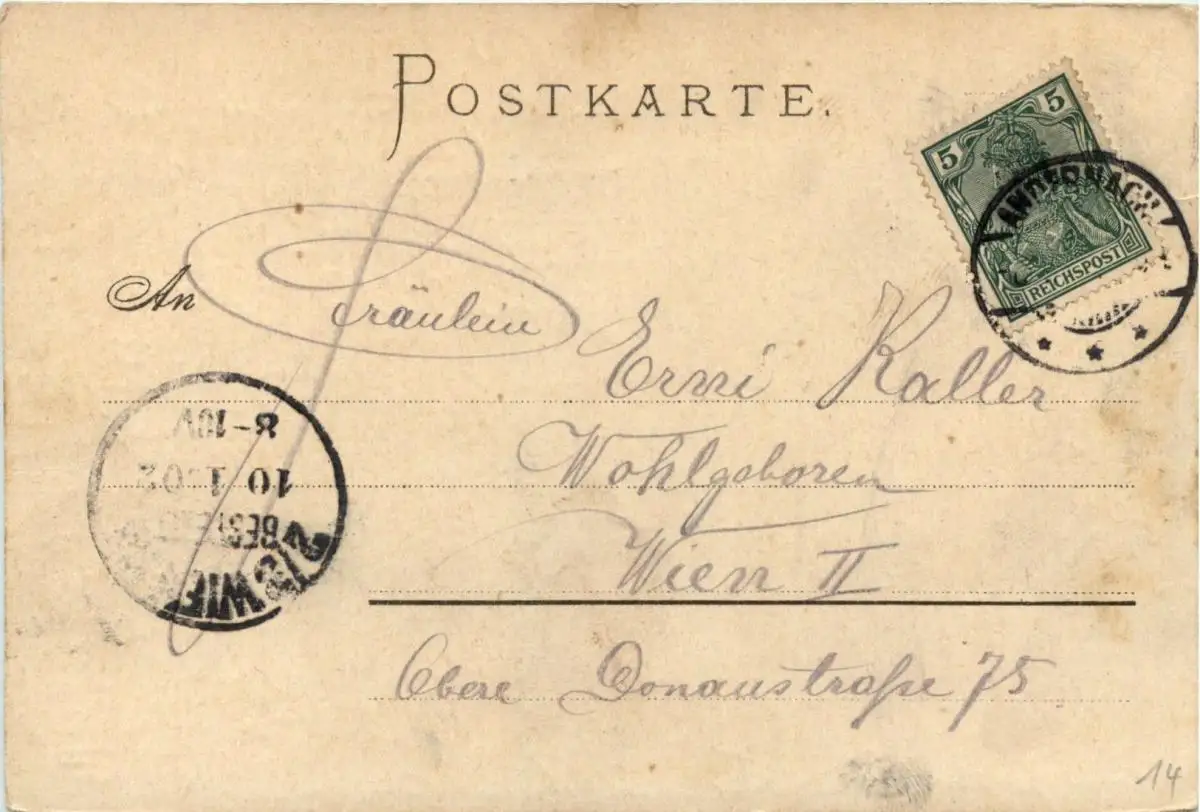 POSTKARTE.
5 5
ANDERNACH
REICHSPOST
An Fräulein
Erni Kaller
Wohlgeboren
Wien II
Obere Donaustraße 75
8-10V
10 1 02
BEST
2/2 WIEN
14